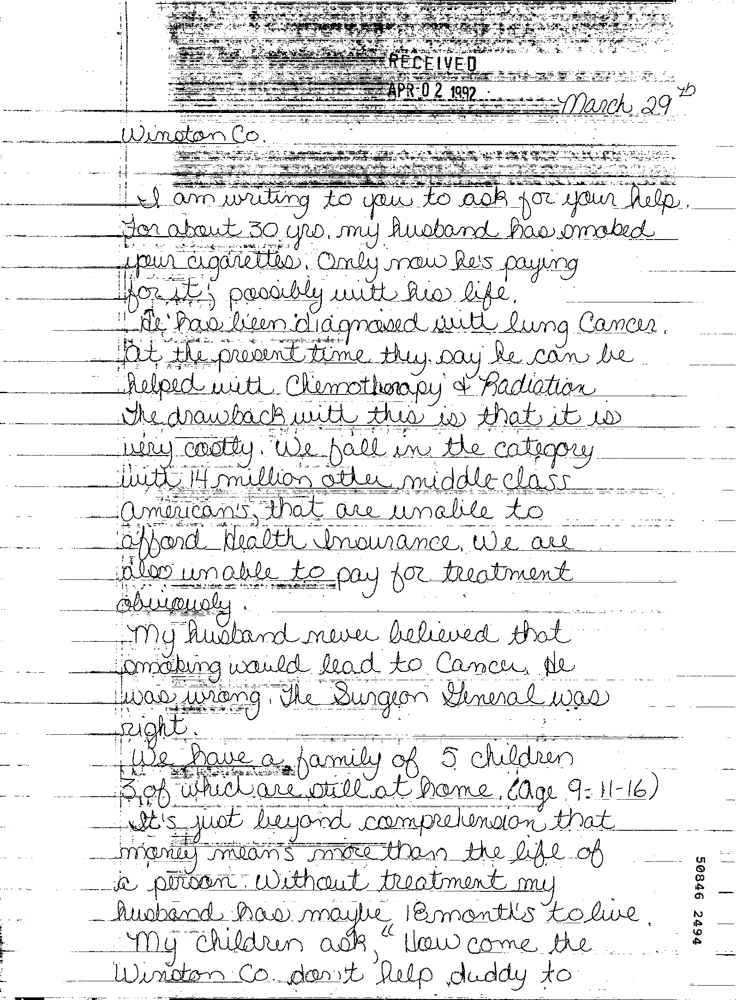 RECEIVED
APR 02 1992
March 29th
Winston Co.
I am writing to you to ask for your help.
For about 30 yrs. my husband has smoked
your cigarettes. Only now he's paying
for it; possibly with his life.
He has been diagnosed with lung Cancer.
At the present time they say he can be
helped with Chemotherapy & Radiation
The drawback with this is that it is
very costly. We fall in the category
with 14 million other middle-class
American's, that are unable to
afford Health Insurance. We are
also unable to pay for treatment
obviously.
My husband never believed that
smoking would lead to Cancer. He
was wrong. The Surgeon General was
right.
We have a family of 5 children
3 of which are still at home. (Age 9-11-16)
It's just beyond comprehension that
money means more than the life of
a person. Without treatment my
husband has maybe 18 month's to live.
My children ask, "How come the
Winston Co. don't help daddy to
50846 2494